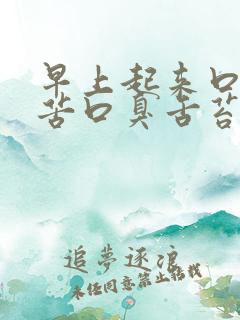 早上起来口
苦口臭舌苔
追夢逐浪
未经同意禁止转载